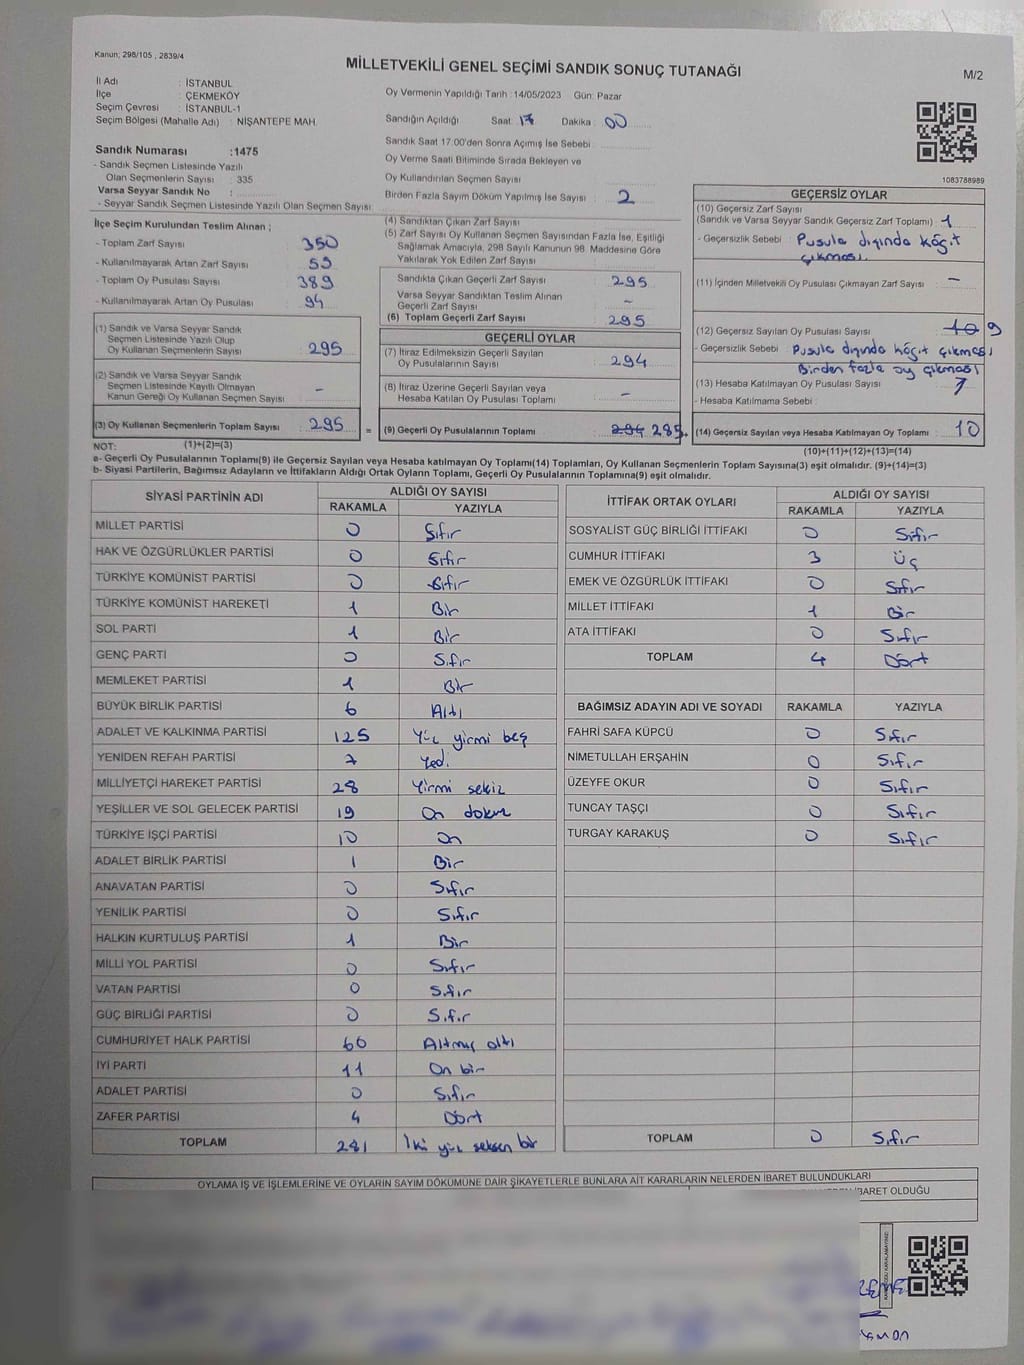 Kanun; 298/105 , 2839/4
MİLLETVEKİLİ GENEL SEÇİMİ SANDIK SONUÇ TUTANAĞI
M/2
İl Adı : İSTANBUL
İlçe : ÇEKMEKÖY
Seçim Çevresi : İSTANBUL-1
Seçim Bölgesi (Mahalle Adı) : NİŞANTEPE MAH.
Sandık Numarası :1475
- Sandık Seçmen Listesinde Yazılı
Olan Seçmenlerin Sayısı : 335
Varsa Seyyar Sandık No :
- Seyyar Sandık Seçmen Listesinde Yazılı Olan Seçmen Sayısı:
Oy Vermenin Yapıldığı Tarih :14/05/2023 Gün: Pazar
Sandığın Açıldığı Saat: 17 Dakika : 00
Sandık Saat 17:00'den Sonra Açımış İse Sebebi :
Oy Verme Saati Bitiminde Sırada Bekleyen ve
Oy Kullandırılan Seçmen Sayısı
Birden Fazla Sayım Döküm Yapılmış İse Sayısı : 2
1083788989
İlçe Seçim Kurulundan Teslim Alınan ;
- Toplam Zarf Sayısı : 350
- Kullanılmayarak Artan Zarf Sayısı : 55
- Toplam Oy Pusulası Sayısı : 389
- Kullanılmayarak Artan Oy Pusulası : 94
(1) Sandık ve Varsa Seyyar Sandık
Seçmen Listesinde Yazılı Olup
Oy Kullanan Seçmenlerin Sayısı : 295
(2) Sandık ve Varsa Seyyar Sandık
Seçmen Listesinde Kayıtlı Olmayan
Kanun Gereği Oy Kullanan Seçmen Sayısı : -
(3) Oy Kullanan Seçmenlerin Toplam Sayısı : 295
(1)+(2)=(3)
(4) Sandıktan Çıkan Zarf Sayısı :
(5) Zarf Sayısı Oy Kullanan Seçmen Sayısından Fazla İse, Eşitliği
Sağlamak Amacıyla, 298 Sayılı Kanunun 98. Maddesine Göre
Yakılarak Yok Edilen Zarf Sayısı :
Sandıkta Çıkan Geçerli Zarf Sayısı : 295
Varsa Seyyar Sandıktan Teslim Alınan
Geçerli Zarf Sayısı : -
(6) Toplam Geçerli Zarf Sayısı : 295
GEÇERLİ OYLAR
(7) İtiraz Edilmeksizin Geçerli Sayılan
Oy Pusulalarının Sayısı : 294
(8) İtiraz Üzerine Geçerli Sayılan veya
Hesaba Katılan Oy Pusulası Toplamı : -
= (9) Geçerli Oy Pusulalarının Toplamı : 294 285
GEÇERSİZ OYLAR
(10) Geçersiz Zarf Sayısı
(Sandık ve Varsa Seyyar Sandık Geçersiz Zarf Toplamı) : 1
- Geçersizlik Sebebi : Pusula dışında kâğıt
çıkması.
(11) İçinden Milletvekili Oy Pusulası Çıkmayan Zarf Sayısı : -
(12) Geçersiz Sayılan Oy Pusulası Sayısı : 10 9
- Geçersizlik Sebebi : Pusula dışında kâğıt çıkması
Birden fazla oy çıkması
(13) Hesaba Katılmayan Oy Pusulası Sayısı :
- Hesaba Katılmama Sebebi :
(14) Geçersiz Sayılan veya Hesaba Katılmayan Oy Toplamı : 10
(10)+(11)+(12)+(13)=(14)
NOT:
a- Geçerli Oy Pusulalarının Toplamı(9) ile Geçersiz Sayılan veya Hesaba katılmayan Oy Toplamı(14) Toplamları, Oy Kullanan Seçmenlerin Toplam Sayısına(3) eşit olmalıdır. (9)+(14)=(3)
b- Siyasi Partilerin, Bağımsız Adayların ve İttifakların Aldığı Ortak Oyların Toplamı, Geçerli Oy Pusulalarının Toplamına(9) eşit olmalıdır.
SİYASİ PARTİNİN ADI ALDIĞI OY SAYISI
RAKAMLA YAZIYLA
MİLLET PARTİSİ 0 Sıfır
HAK VE ÖZGÜRLÜKLER PARTİSİ 0 Sıfır
TÜRKİYE KOMÜNİST PARTİSİ 0 Sıfır
TÜRKİYE KOMÜNİST HAREKETİ 1 Bir
SOL PARTİ 1 Bir
GENÇ PARTİ 0 Sıfır
MEMLEKET PARTİSİ 1 Bir
BÜYÜK BİRLİK PARTİSİ 6 Altı
ADALET VE KALKINMA PARTİSİ 125 Yüz yirmi beş
YENİDEN REFAH PARTİSİ 7 Yedi
MİLLİYETÇİ HAREKET PARTİSİ 28 Yirmi sekiz
YEŞİLLER VE SOL GELECEK PARTİSİ 19 On dokuz
TÜRKİYE İŞÇİ PARTİSİ 10 On
ADALET BİRLİK PARTİSİ 1 Bir
ANAVATAN PARTİSİ 0 Sıfır
YENİLİK PARTİSİ 0 Sıfır
HALKIN KURTULUŞ PARTİSİ 1 Bir
MİLLİ YOL PARTİSİ 0 Sıfır
VATAN PARTİSİ 0 Sıfır
GÜÇ BİRLİĞİ PARTİSİ 0 Sıfır
CUMHURİYET HALK PARTİSİ 66 Altmış altı
İYİ PARTİ 11 On bir
ADALET PARTİSİ 0 Sıfır
ZAFER PARTİSİ 4 Dört
TOPLAM 281 İki yüz seksen bir
İTTİFAK ORTAK OYLARI ALDIĞI OY SAYISI
RAKAMLA YAZIYLA
SOSYALİST GÜÇ BİRLİĞİ İTTİFAKI 0 Sıfır
CUMHUR İTTİFAKI 3 Üç
EMEK VE ÖZGÜRLÜK İTTİFAKI 0 Sıfır
MİLLET İTTİFAKI 1 Bir
ATA İTTİFAKI 0 Sıfır
TOPLAM 4 Dört
BAĞIMSIZ ADAYIN ADI VE SOYADI RAKAMLA YAZIYLA
FAHRİ SAFA KÜPCÜ 0 Sıfır
NİMETULLAH ERŞAHİN 0 Sıfır
ÜZEYFE OKUR 0 Sıfır
TUNCAY TAŞÇI 0 Sıfır
TURGAY KARAKUŞ 0 Sıfır
TOPLAM 0 Sıfır
OYLAMA İŞ VE İŞLEMLERİNE VE OYLARIN SAYIM DÖKÜMÜNE DAİR ŞİKAYETLERLE BUNLARA AİT KARARLARIN NELERDEN İBARET BULUNDUKLARI
İBARET OLDUĞU